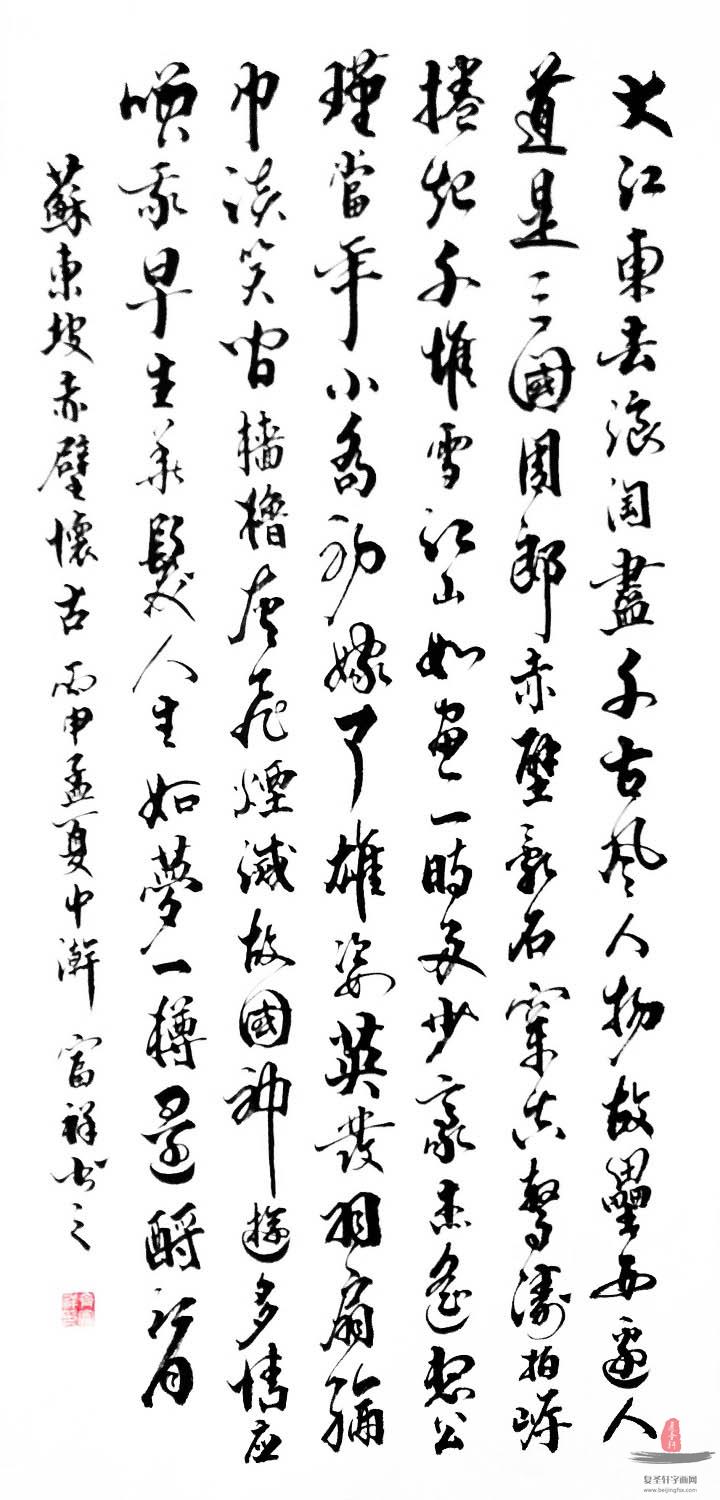 大江東去浪淘盡千古風人物故壘西邊人
道是三國周郎赤壁亂石穿空驚濤拍岸
捲起千堆雪江山如畫一時多少豪杰遙想公
瑾當年小喬初嫁了雄姿英發羽扇綸
巾談笑間檣櫓灰飛煙滅故國神遊多情应
喚我早生華髮人生如夢一樽還酹江月
蘇東坡赤壁懷古丙申孟夏中澣富祥书之
复圣轩字画网
www.beijingfsx.com